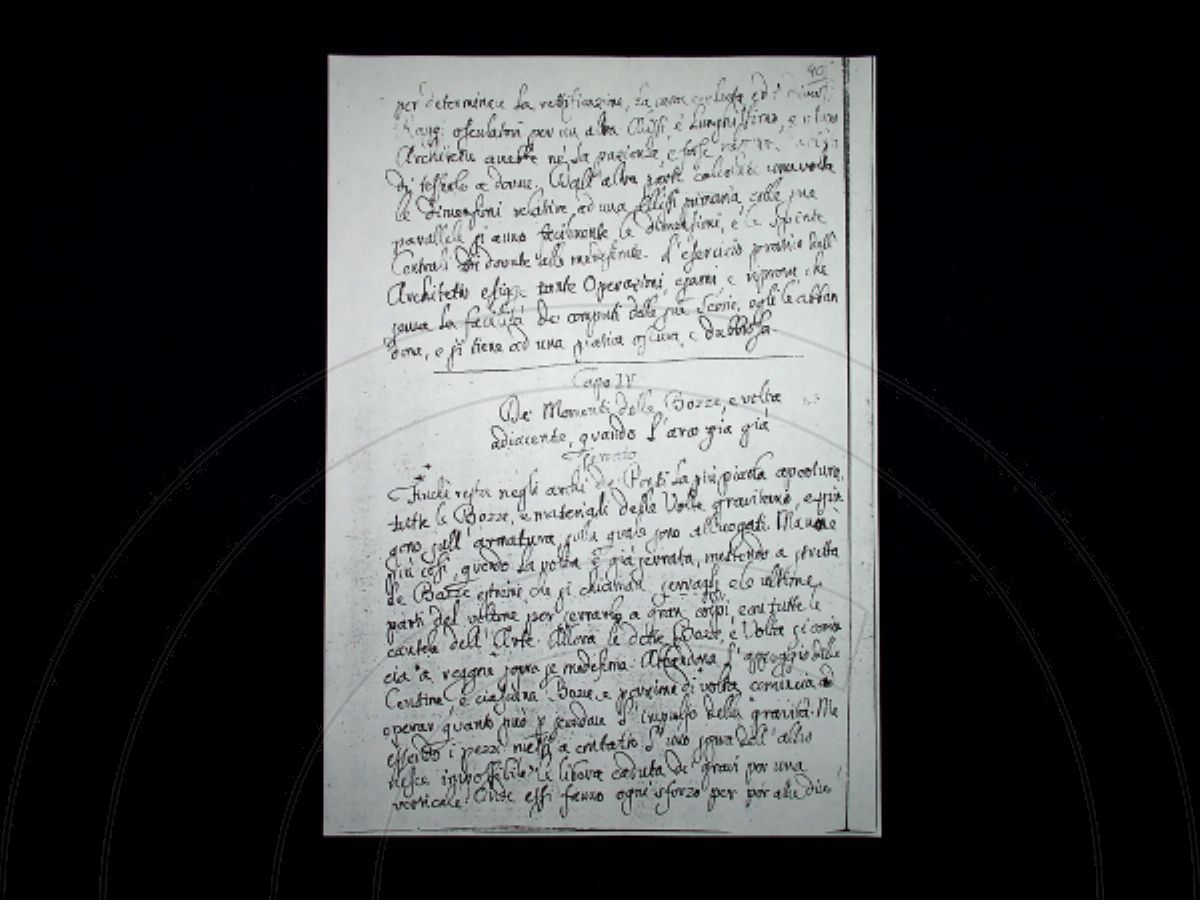 40
per determinare la rettificazione, la curva evoluta, ed i
Raggi osculatori per un altra Elissi, è lunghissimo, e
Architetto avrebbe nè la pazienza, e forse
di tesserlo a dovere. Dall'altra parte calcolate una volta
le dimensioni relative ad una Ellissi primaria, colle sue
parallele si anno facilmente le dimensioni, e le spinte
Centrali dovute alle medesime. L'esercizio pratico dell'
Architetto esigge tante Operazioni, esami, e riprove che
senza la facilità de computi delle sue Teorie, egli le abban
dona, e si tiene ad una pratica oscura, e dubbiosa.
Capo IV
De' Momenti delle Bozze, e volta
adiacente, quando l'arco sia già
Serrato
Finchè resta negli archi de Ponti la più picciola apertura,
tutte le Bozze, e materiali delle Volte gravitano, e spin
gono sull'armatura, sulla quale sono allocati. Ma non è
più così, quando la volta è già serrata, mettendo a stretta
le Bozze estreme, che si chiamano serragli e le ultime
parti del voltone per serrarlo a gran colpi, con tutte le
cautele dell'Arte. Allora le dette Bozze, e Volta si comin
cia a reggere sovra se medesima. Abbandona l'appoggio delle
Centine, e ciascuna Bozza, e porzione di volta comincia ad
operar quanto può secondo l'impulso della gravità. Ma
essendo i pezzi messi a contatto l'uno sovra dell'altro
riesce impossibile la libera caduta de' gravi per una
verticale. Onde essi fanno ogni sforzo per